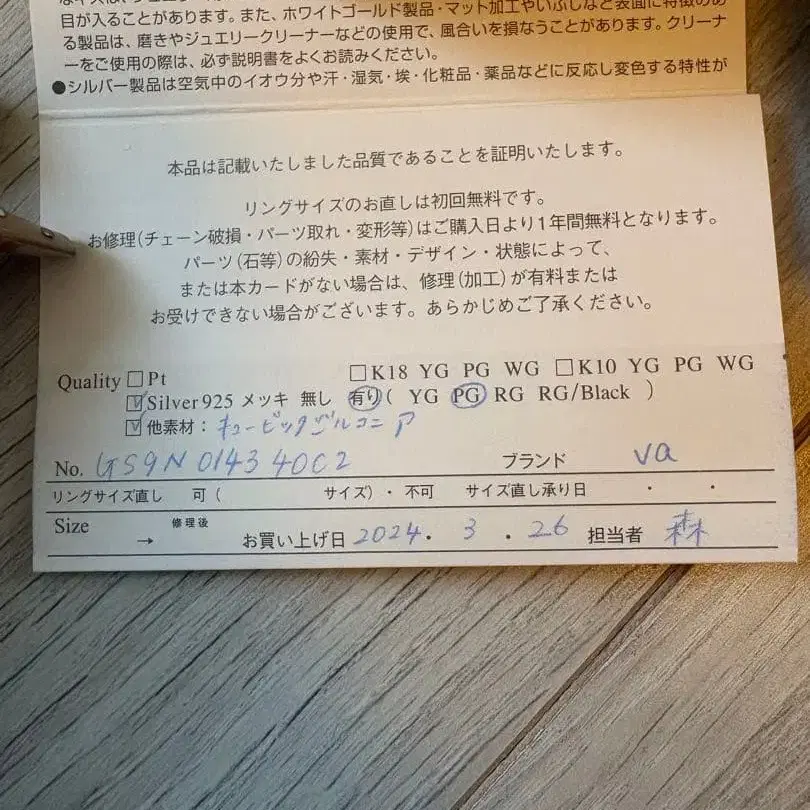 目が入ることがあります。また、ホワイトゴールド製品・マット加工やいぶしなど表面に特徴のあ
る製品は、磨きやジュエリークリーナーなどの使用で、風合いを損なうことがあります。クリーナ
ーをご使用の際は、必ず説明書をよくお読みください。
●シルバー製品は空気中のイオウ分や汗・湿気・埃・化粧品・薬品などに反応し変色する特性が
本品は記載いたしました品質であることを証明いたします。
リングサイズのお直しは初回無料です。
お修理(チェーン破損・パーツ取れ・変形等)はご購入日より1年間無料となります。
パーツ(石等)の紛失・素材・デザイン・状態によって、
または本カードがない場合は、修理(加工)が有料または
お受けできない場合がございます。あらかじめご了承ください。
Quality □Pt □K18 YG PG WG □K10 YG PG WG
☑Silver925 メッキ 無し 有り( YG PG RG RG/Black )
☑他素材: キュービックジルコニア
No. GS9N 0143 40C2 ブランド va
リングサイズ直し 可( サイズ)・不可 サイズ直し承り日 ・ ・
Size → 修理後 お買い上げ日 2024. 3 . 26 担当者 森